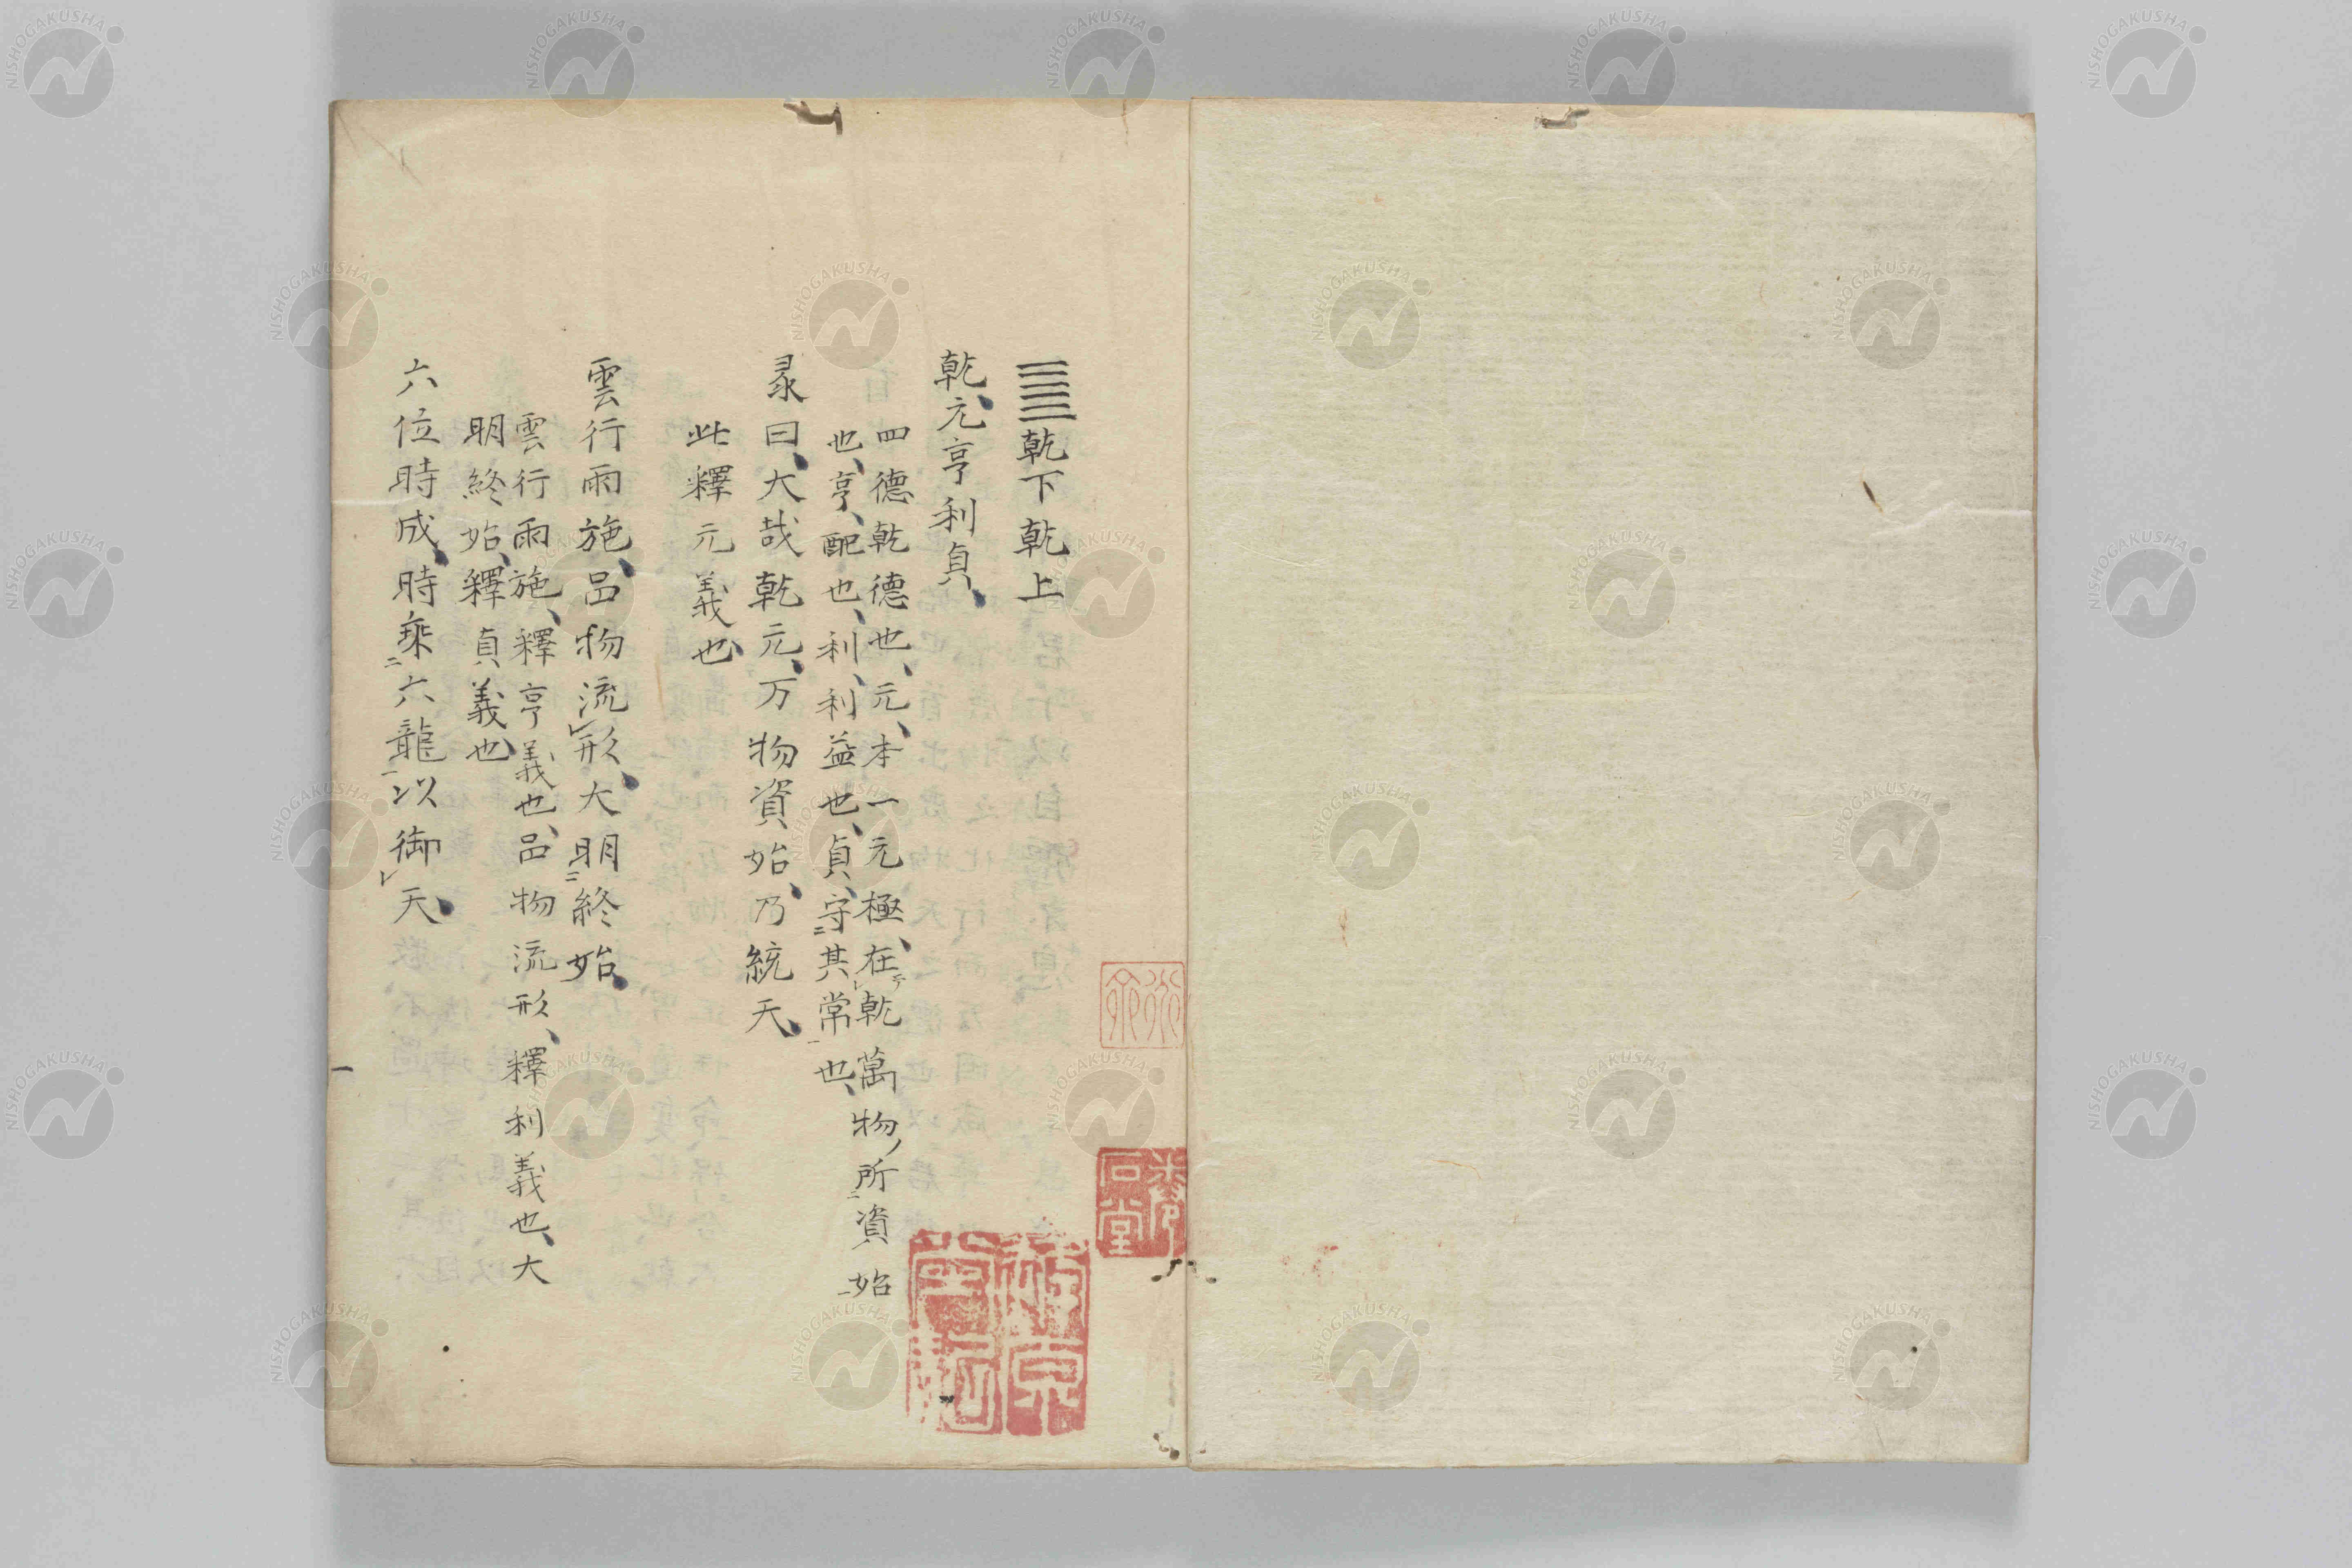 ䷀乾下乾上
乾、元亨利貞、
四德乾德也、元、本一元極、在乾萬物所資始
也、亨、配也、利、利益也、貞、守其常也、
彖曰、大哉乾元、万物資始、乃統天、
此釋元義也、
雲行雨施、品物流形、大明終始、
雲行雨施、釋亨義也、品物流形、釋利義也、大
明終始、釋貞義也、
六位時成、時乘六龍以御天、
NISHOGAKUSHA